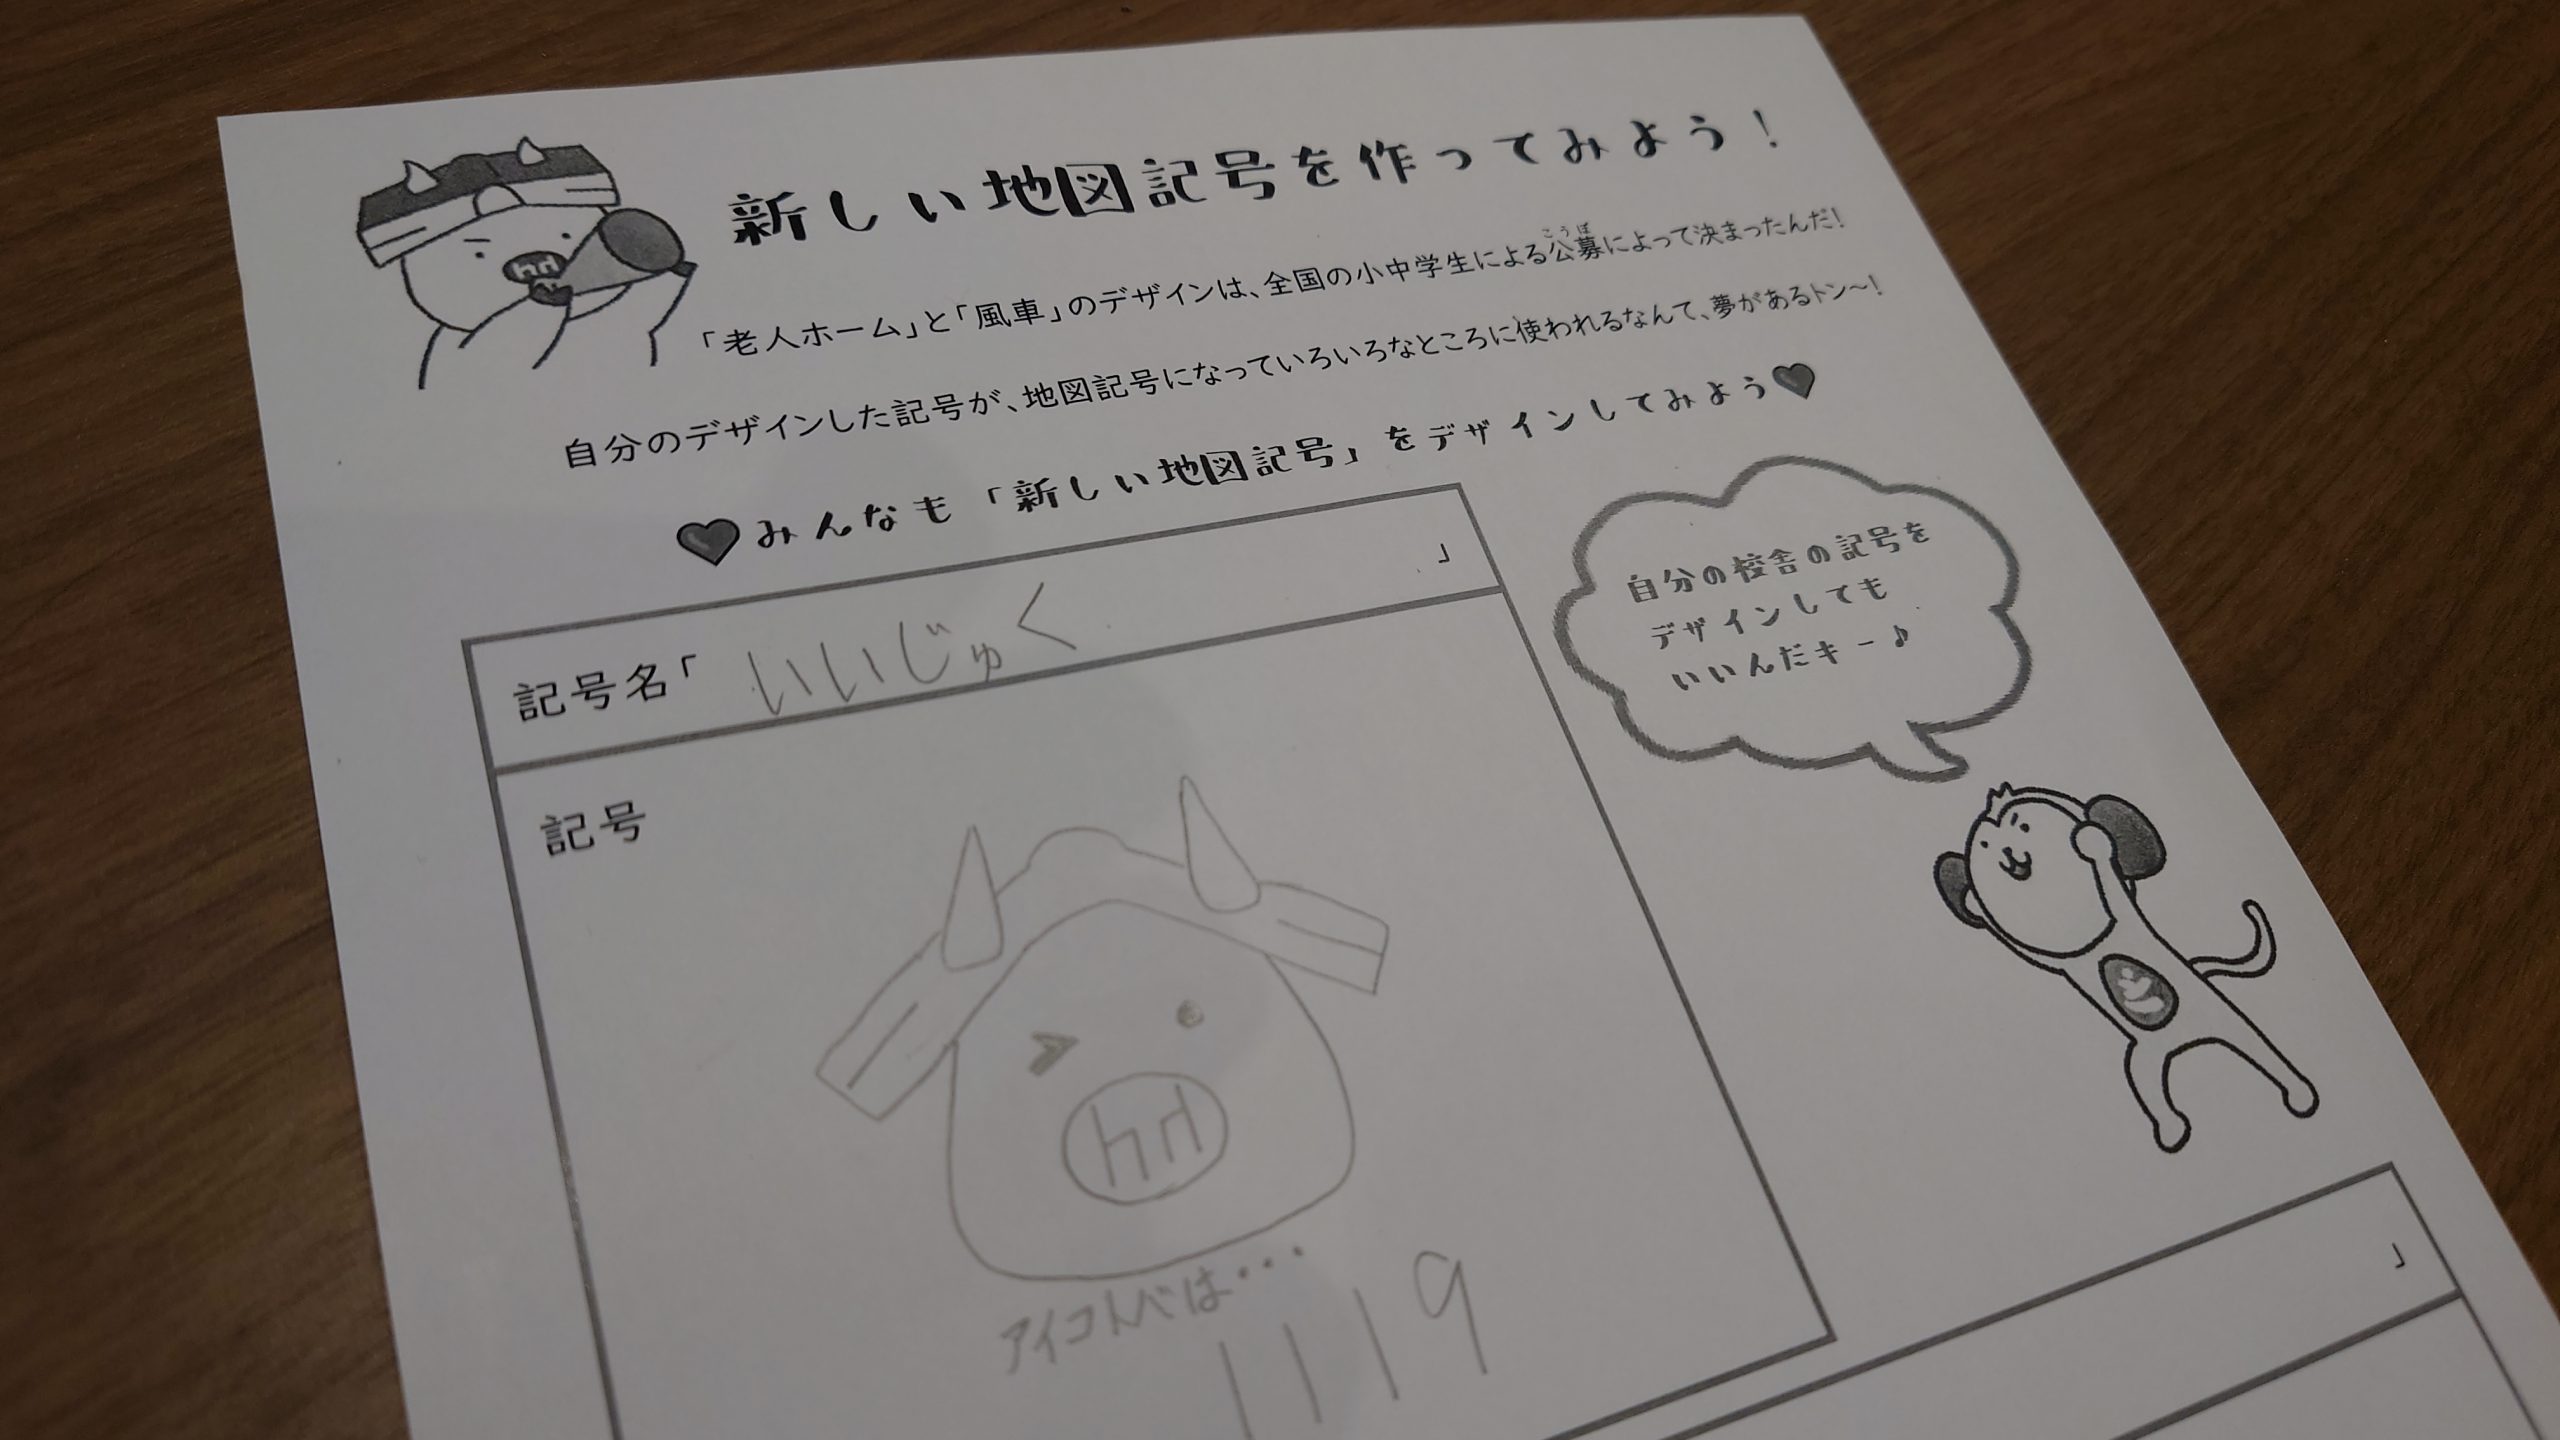 新しい地図記号を作ってみよう！
「老人ホーム」と「風車」のデザインは、全国の小中学生による公募によって決まったんだ！
こうぼ
自分のデザインした記号が、地図記号になっていろいろなところに使われるなんて、夢があるトン～！
みんなも「新しい地図記号」をデザインしてみよう
記号名「 いいじゅく 」
記号
アイコトバは・・・
1119
自分の校舎の記号を
デザインしても
いいんだキー♪
」